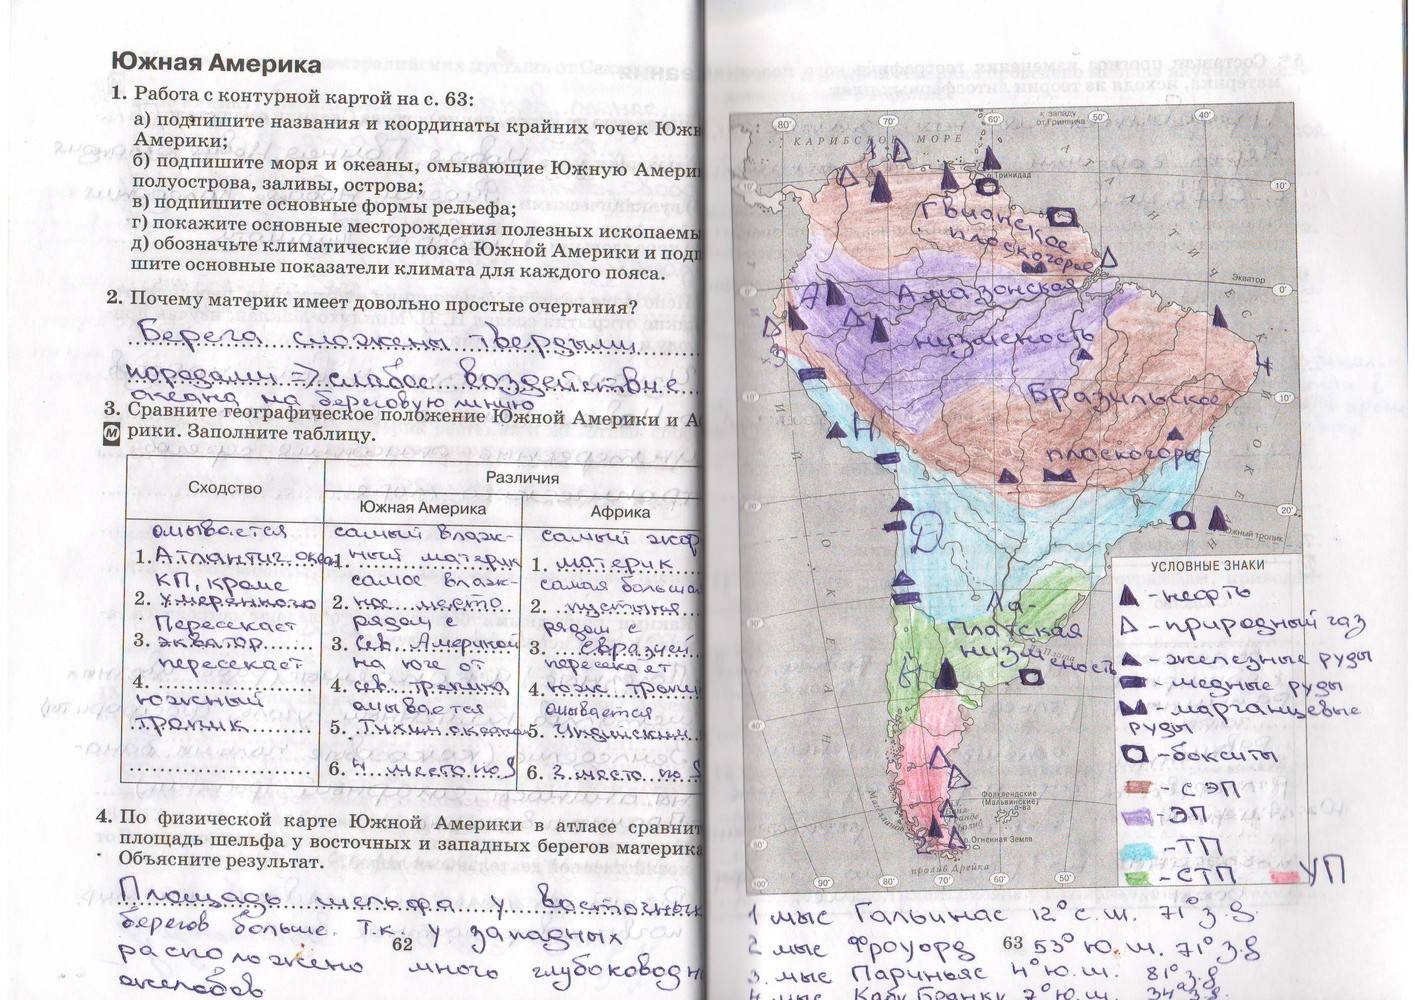 Южная Америка
1. Работа с контурной картой на с. 63:
а) подпишите названия и координаты крайних точек Южн
Америки;
б) подпишите моря и океаны, омывающие Южную Амери
полуострова, заливы, острова;
в) подпишите основные формы рельефа;
г) покажите основные месторождения полезных ископаемы
д) обозначьте климатические пояса Южной Америки и подп
шите основные показатели климата для каждого пояса.
2. Почему материк имеет довольно простые очертания?
Берега сложены твердыми
породами => слабое воздействие
океана на береговую линию
3. Сравните географическое положение Южной Америки и А
М рики. Заполните таблицу.
Сходство
Различия
Южная Америка
Африка
омывается
1. Атлантич. океан
КП, кроме
2. умеренного
Пересекает
3. экватор
пересекает
4.
южный
тропик
самый влаж-
1. ный материк
самое влаж-
2. ное место
рядом с
3. Сев. Америкой
на юг от
4. сев. тропика
омывается
5. Тихим океаном
6. 4 место по S
самый жар
1. материк
самая больша
2. пустыня
рядом с
3. Евразией
пересекает
4. южн. тропи
омывается
5. Индийским
6. 2 место по S
4. По физической карте Южной Америки в атласе сравнит
площадь шельфа у восточных и западных берегов материка
Объясните результат.
Площадь шельфа у восточных
берегов больше. Т.к. у западных
расположено много глубоководн
желобов
62
80° 70° 60° к западу от Гринвича 50° 40°
КАРИБСКОЕ МОРЕ
о. Тринидад
10° 10°
АТЛАНТИЧЕСКИЙ ОКЕАН
Гвианское
плоскогорье
Экватор
0° 0°
А Амазонская
низменность
3
4
Бразильское
плоскогорье
10° 10°
Н
20° 20°
Южный тропик
Д
Ла-
Платская
низменность
30°
40°
50°
Фолклендские
(Мальвинские)
о-ва
о. Огненная Земля
пролив Дрейка
100° 90° 80° 70° 60° 50°
УСЛОВНЫЕ ЗНАКИ
- нефть
- природный газ
- железные руды
- медные руды
- марганцевые
руды
- бокситы
- СЭП
- ЭП
- ТП
- СТП
УП
1 мыс Гальинас 12° с.ш. 71° з.д.
2 мыс Фроуорд 53° ю.ш. 71° з.д
63
3. мыс Париньяс 4° ю.ш. 81° з.д
4. мыс Кабу Бранку 7° ю.ш. 34° з.д.